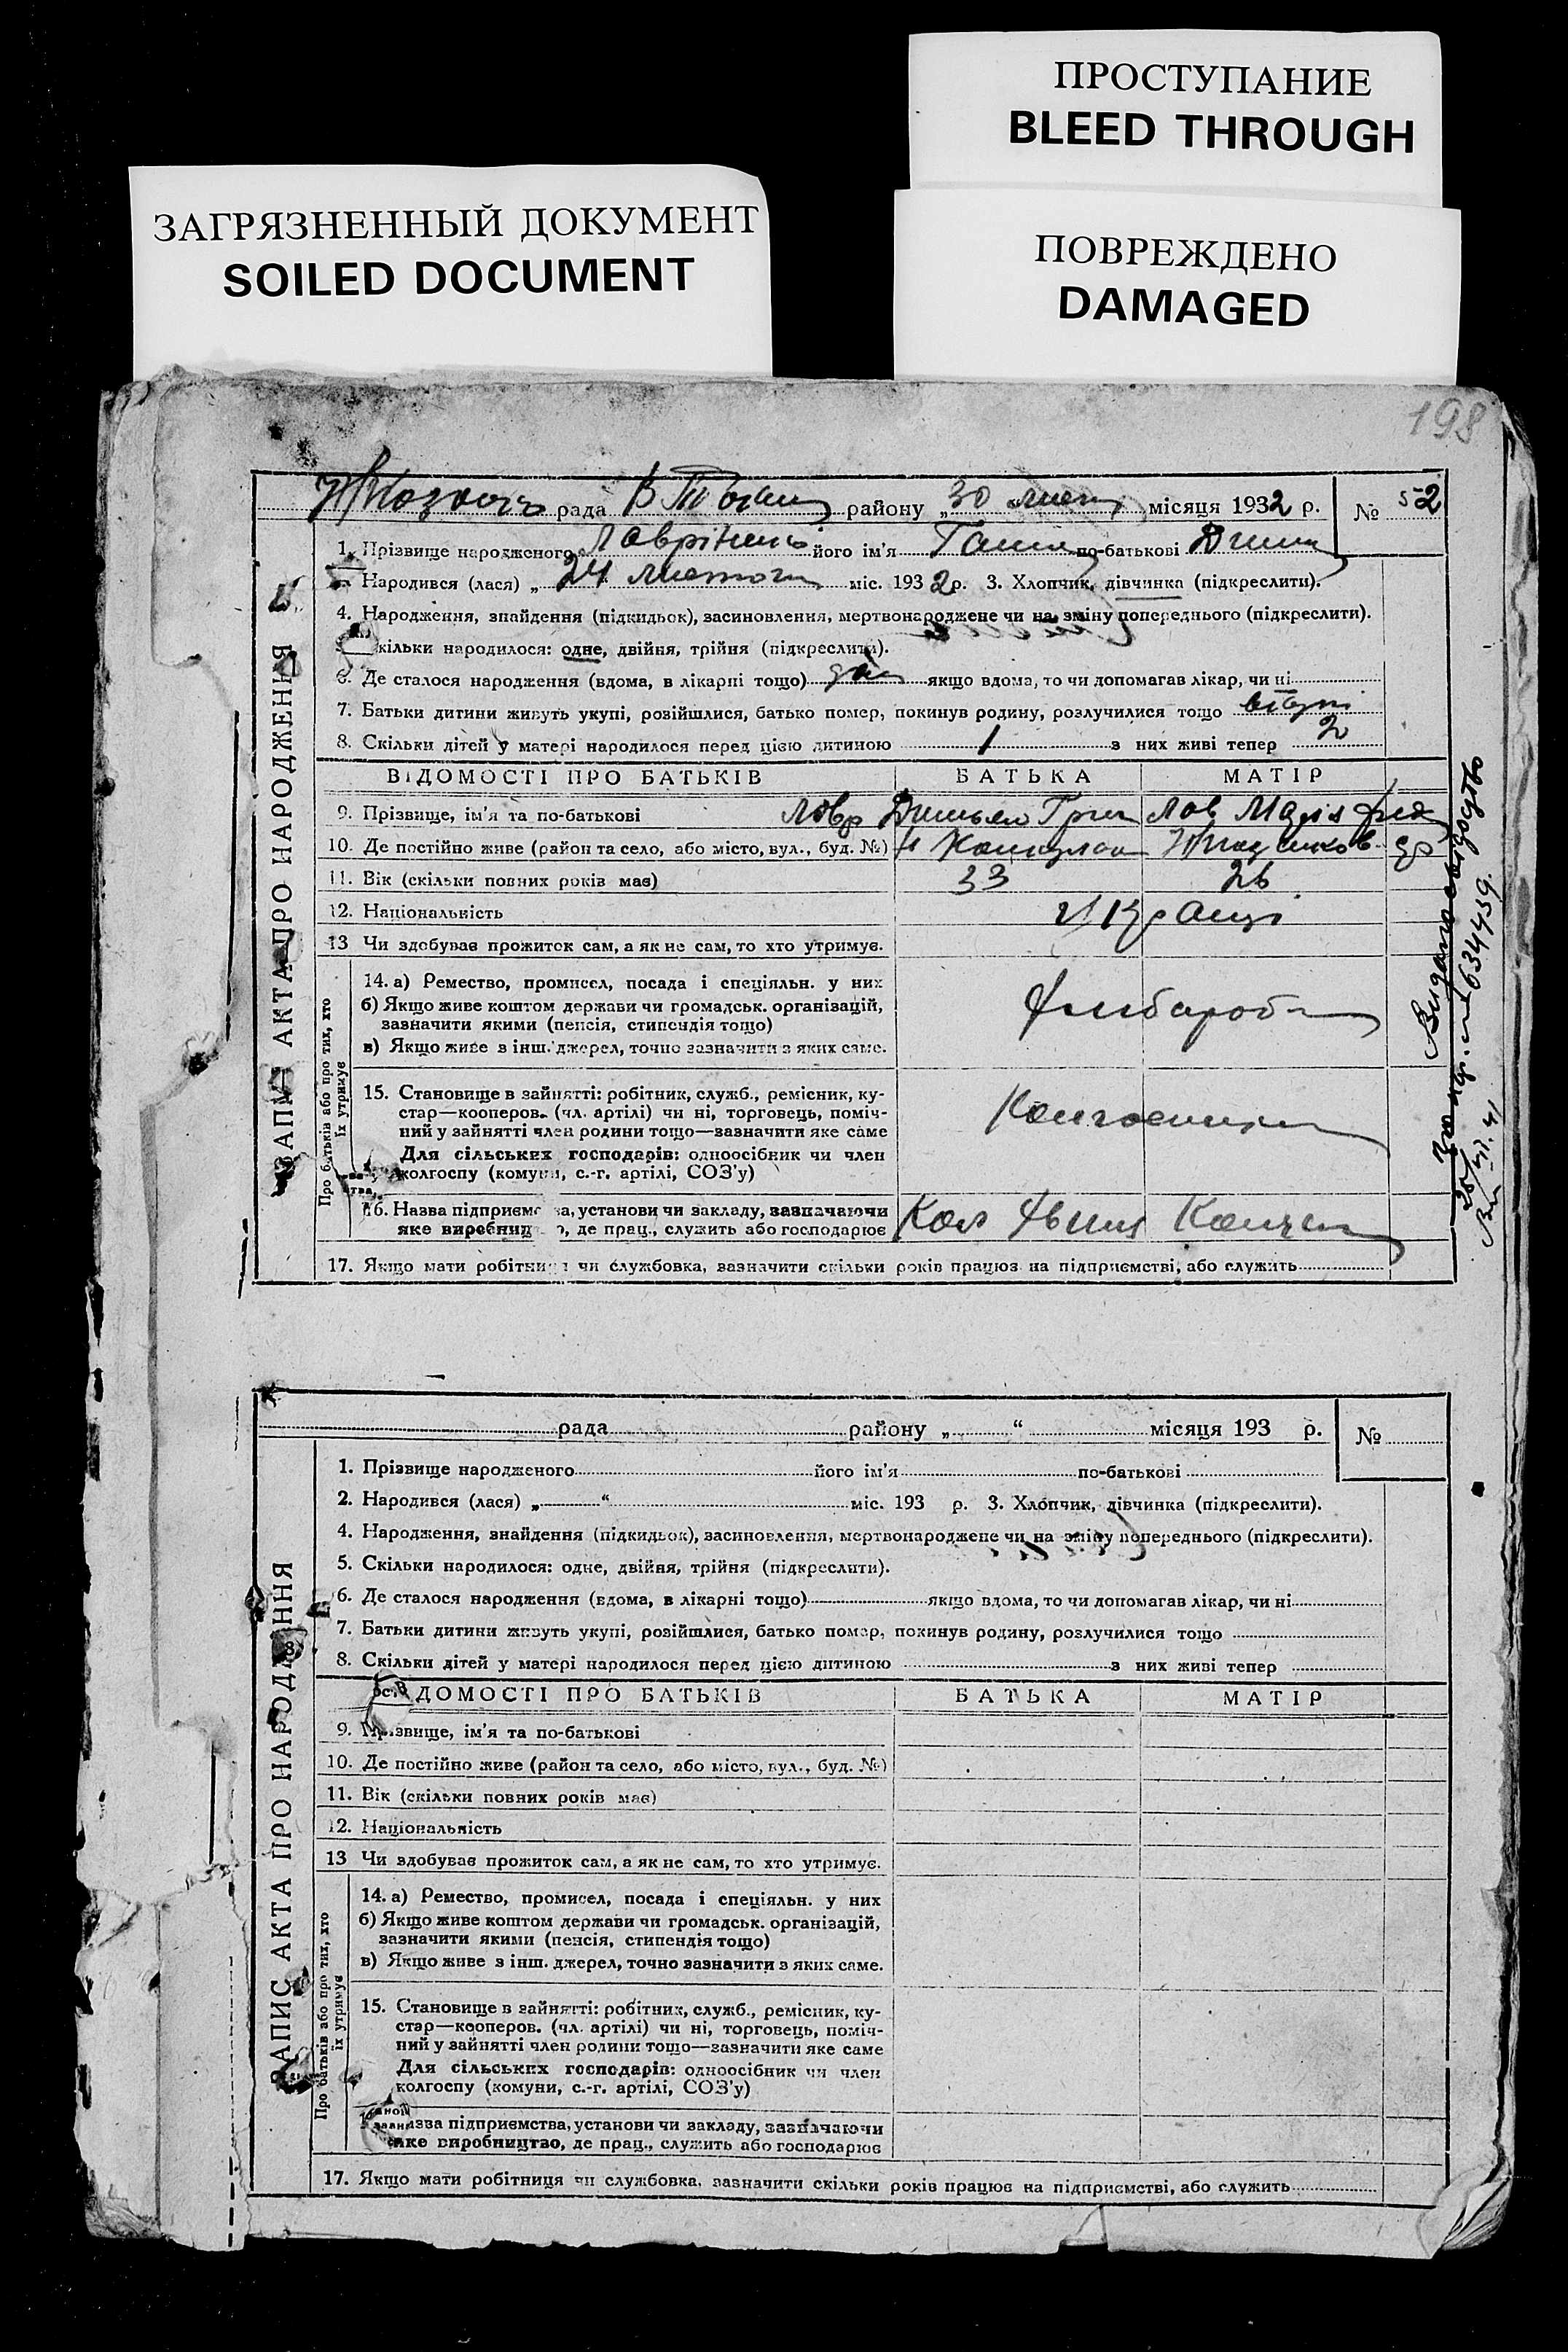 ПРОСТУПАНИЕ
BLEED THROUGH
ЗАГРЯЗНЕННЫЙ ДОКУМЕНТ
SOILED DOCUMENT
ПОВРЕЖДЕНО
DAMAGED
198
рада района „30 місяця 1932 р. № 52
1. Прізвище народженого його ім'я по-батькові
Народився (лася) „24 лютого міс. 1932 р. 3. Хлопчик, дівчинка (підкреслити).
4. Народження, знайдення (підкидьок), засиновлення, мертвонароджене чи на зміну попереднього (підкреслити).
кільки народилося: одне, двійня, трійня (підкреслити).
6. Де сталося народження (вдома, в лікарні тощо) якщо вдома, то чи допомагав лікар, чи ні
7. Батьки дитини живуть укупі, розійшлися, батько помер, покинув родину, розлучилися тощо вкупі
8. Скільки дітей у матері народилося перед цією дитиною 1 з них живі тепер 2
ВІДОМОСТІ ПРО БАТЬКІВ БАТЬКА МАТІР
9. Прізвище, ім'я та по-батькові
10. Де постійно живе (район та село, або місто, вул., буд. №)
11. Вік (скільки повних років має) 33 26
12. Національність
13 Чи здобував прожиток сам, а як не сам, то хто утримує.
14. а) Ремество, промисел, посада і спеціяльн. у них
б) Якщо живе коштом держави чи громадськ. організацій,
зазначити якими (пенсія, стипендія тощо)
в) Якщо живе з інш. джерел, точно зазначити з яких саме.
15. Становище в зайнятті: робітник, служб., ремісник, ку-
стар—кооперов. (чл. артілі) чи ні, торговець, поміч-
ний у зайнятті член родини тощо—зазначити яке саме
Для сільських господарів: одноосібник чи член
колгоспу (комуни, с.-г. артілі, СОЗ'у)
16. Назва підприємства, установи чи закладу, зазначаючи
яке виробниц о, де прац., служить або господарює
17. Якщо мати робітниця чи службовка, зазначити скільки років працює на підприємстві, або служить
ЗАПИС АКТА ПРО НАРОДЖЕННЯ
Про батьків або про тих, хто
їх утримує
Видано свідоцтво
634439.
рада району „ “ місяця 193 р. №
1. Прізвище народженого його ім'я по-батькові
2. Народився (лася) „ “ міс. 193 р. 3. Хлопчик, дівчинка (підкреслити).
4. Народження, знайдення (підкидьок), засиновлення, мертвонароджене чи на зміну попереднього (підкреслити).
5. Скільки народилося: одне, двійня, трійня (підкреслити).
6. Де сталося народження (вдома, в лікарні тощо) якщо вдома, то чи допомагав лікар, чи ні
7. Батьки дитини живуть укупі, розійшлися, батько помер, покинув родину, розлучилися тощо
8. Скільки дітей у матері народилося перед цією дитиною з них живі тепер
ДОМОСТІ ПРО БАТЬКІВ БАТЬКА МАТІР
9. Прізвище, ім'я та по-батькові
10. Де постійно живе (район та село, або місто, вул., буд. №)
11. Вік (скільки повних років має)
12. Національність
13 Чи здобував прожиток сам, а як не сам, то хто утримує.
14. а) Ремество, промисел, посада і спеціяльн. у них
б) Якщо живе коштом держави чи громадськ. організацій,
зазначити якими (пенсія, стипендія тощо)
в) Якщо живе з інш. джерел, точно зазначити з яких саме.
15. Становище в зайнятті: робітник, служб., ремісник, ку-
стар—кооперов. (чл. артілі) чи ні, торговець, поміч-
ний у зайнятті член родини тощо—зазначити яке саме
Для сільських господарів: одноосібник чи член
колгоспу (комуни, с.-г. артілі, СОЗ'у)
азва підприємства, установи чи закладу, зазначаючи
яке виробництво, де прац., служить або господарює
17. Якщо мати робітниця чи службовка, зазначити скільки років працює на підприємстві, або служить
ЗАПИС АКТА ПРО НАРОДЖЕННЯ
Про батьків або про тих, хто
їх утримує